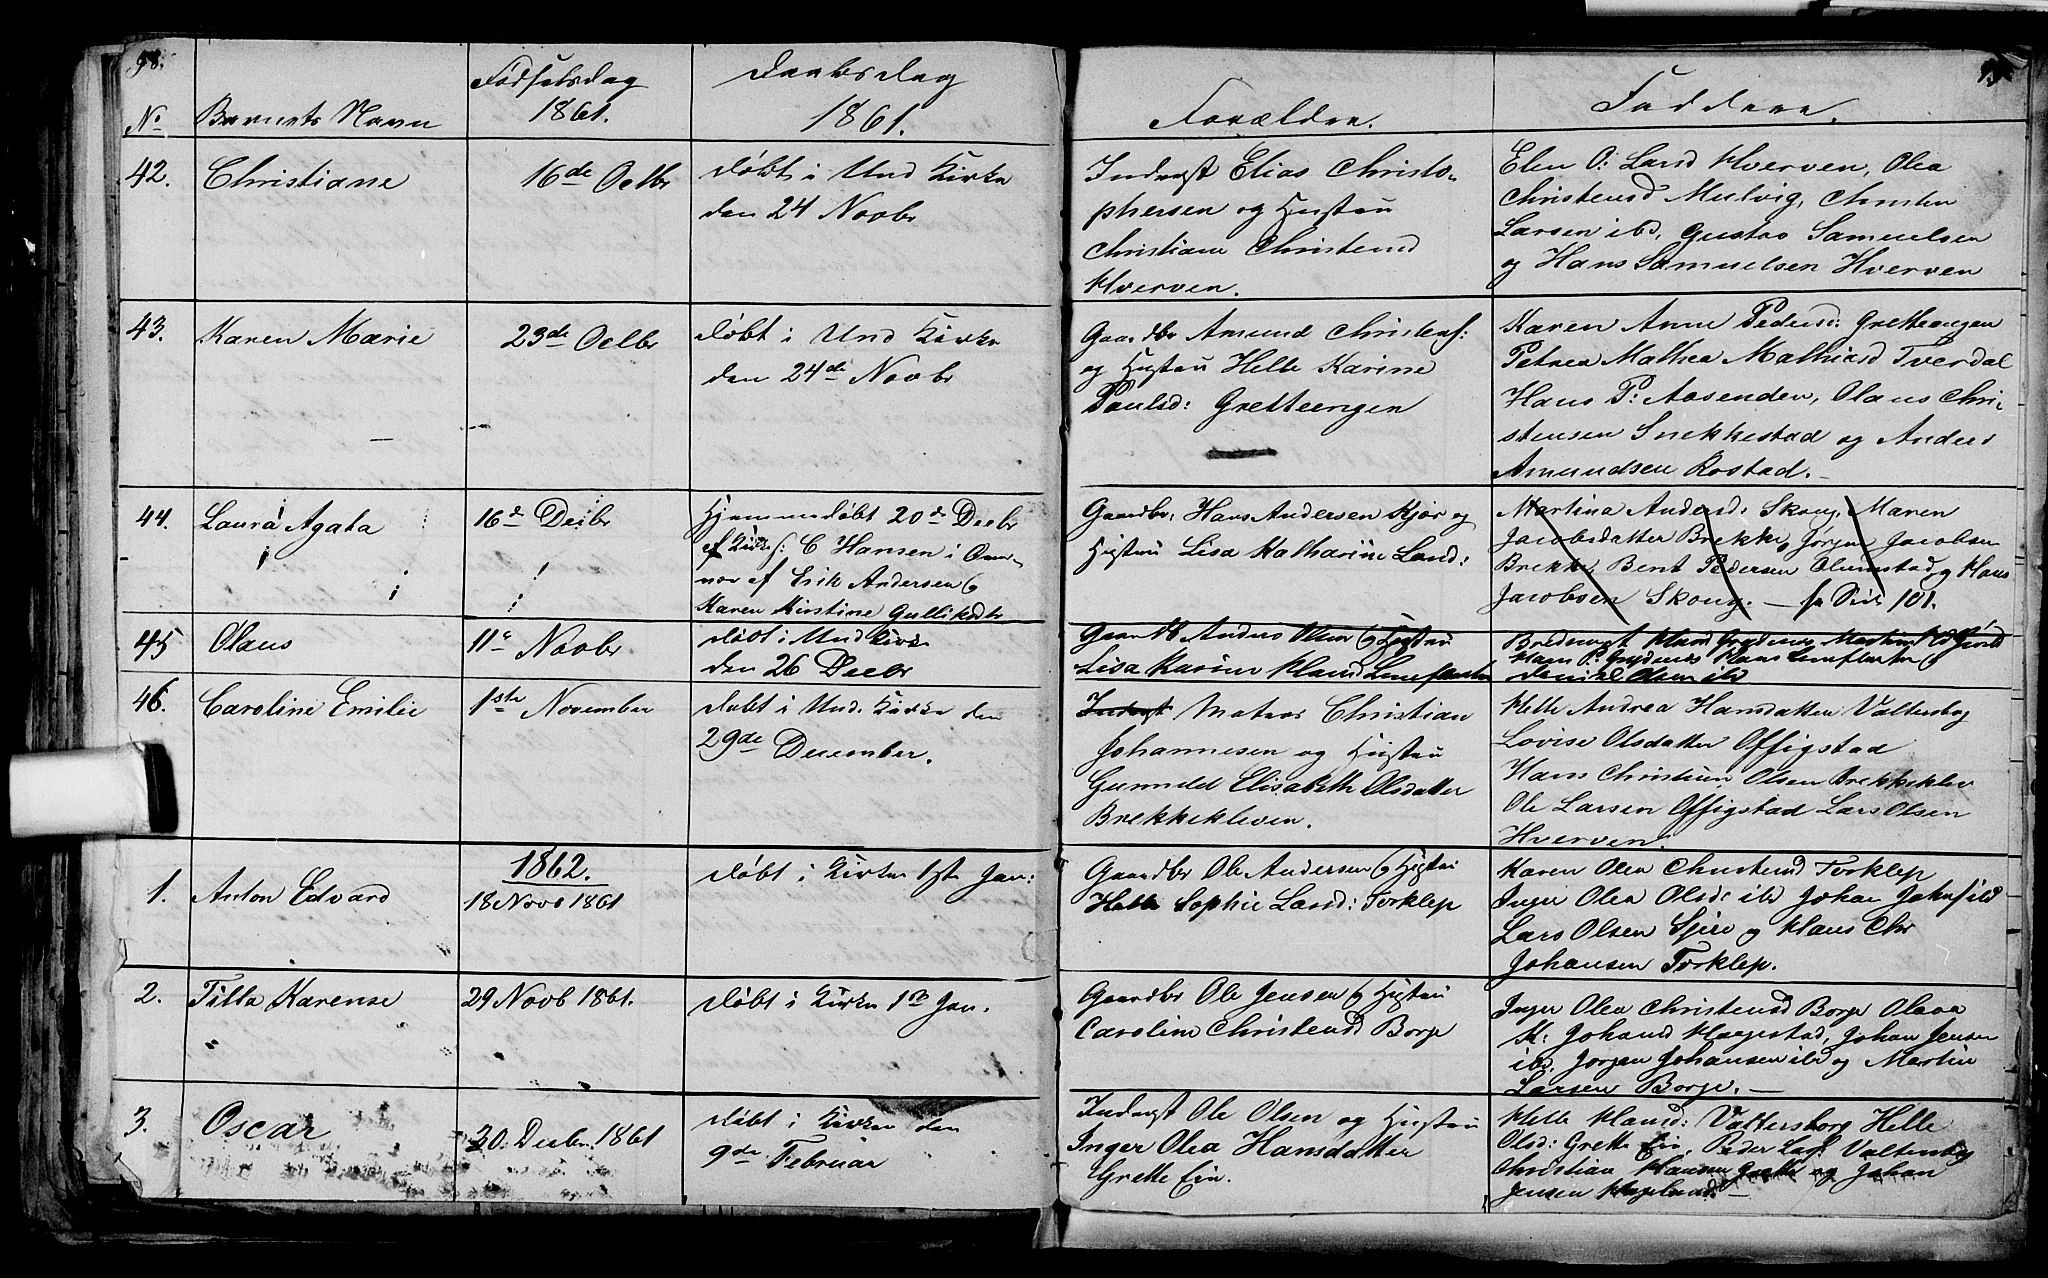 98.
No
Barnets Navn
Fødselsdag
1861.
Daabsdag
1861.
Forældre.
Faddere.
42.
Christiane
16de Octbr
døbt i Und Kirke
den 24 Novbr
Inderst Elias Christo-
phersen og Hustru
Christiane Christensd
Hverven.
Elen O: Land Hverven, Olea
Christensd Mulvig, Christen
Larsen ibd, Gustav Samuelsen
og Hans Samuelsen Hverven
43.
Karen Marie
23de Octbr
døbt i Und Kirke
den 24de Novbr
Gaardbr Amund Christens:
og Hustru Helle Karine
Paulsd: Gretteengen
Karen Anne Pedersd: Gretteengen
Petrea Mathea Mathiasd Tverdal
Hans P: Aasenden, Olaus Chri-
stensen Snekkestad og Anders
Amundsen Rostad.
44.
Laura Agata
16d Decbr
Hjemmedøbt 20d Decbr
af Kirkes: C Hansen i
af Erik Andersen &
Karen Kirstine Gulliksdtr
Gaardbr, Hans Andersen Kjær og
Hustru Lisa Katharine Larsd:
Martina Andersd: Skoug, Maren
Jacobsdatter Brekke, Jørgen Jacobsen
Brekke, Bent Pedersen Olumstad og Hans
Jacobsen Skoug. — fr Side 101.
45
Olaus
11e Novbr
døbt i Und Kirke
den 26 Decbr
Gaardb Anders Olsen & Hustru
Lisa Karine Hansd
Hans P:
Daniel Olsen ibd
46.
Caroline Emilie
1ste November
døbt i Und. Kirke den
29de December.
Inderst Matros Christian
Johannesen og Hustru
Gunnild Elisabeth Olsdatter
Brekkekleven.
Helle Andrea Hansdatter Valtersb
Lovise Olsdatter Offigstad
Hans Christian Olsen Brekkeklev
Ole Larsen Offigstad Lars Olsen
Hverven.
1862.
1.
Anton Edvard
18 Novb 1861
døbt i Kirken 1ste Jan:
Gaardbr Ole Andersen & Hustru
Helle Sophie Larsd: Torklep
Karen Olea Christensd Torklep
Inger Olea Olsd: ibd Johan
Lars Olsen Sjue og Hans Chr
Johansen Torklep.
2.
Tilla Karense
29 Novb 1861.
døbt i Kirke 1ste Jan.
Gaardbr Ole Jensen & Hustru
Caroline Christensd Borge
Inger Olea Christensd Borge Olava
K: Johansd Hagestad, Johan Jensen
ibd, Jørgen Johansen ibd og Martin
Larsen Borge. —
3.
Oscar
30 Decbr 1861
døbt i Kirken den
9de Februar
Inderst Ole Olsen og Hustru
Inger Olea Hansdatter
Grette Ein.
Helle Hansd: Valtersborg Helle
Olsd: Grette Ein, Peder Lars: Valtersbg
Christian Hansen Grette og Johan
Jensen